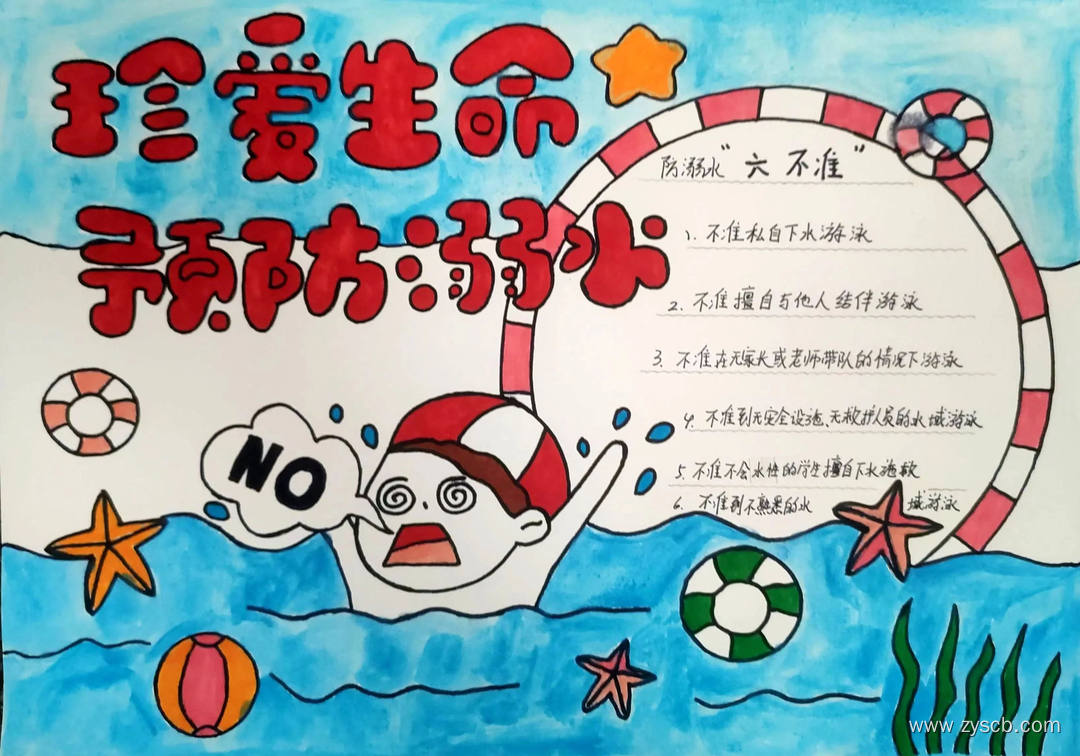 珍爱生命
预防溺水
防溺水"六不准"
1、不准私自下水游泳
2、不准擅自与他人结伴游泳
3、不准在无家长或老师带队的情况下游泳
4、不准到无安全设施、无救护人员的水域游泳
5、不准不会水性的学生擅自下水施救
6、不准到不熟悉的水域游泳
NO
www.zyscb.com